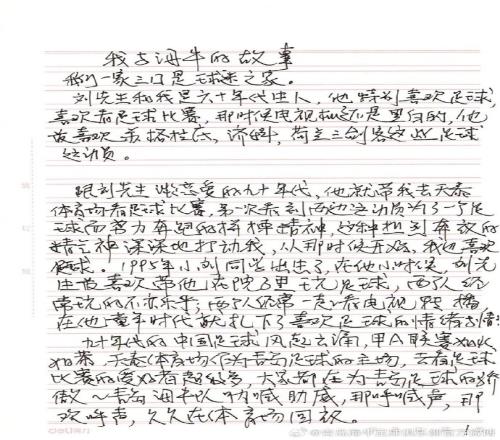 我与海牛的故事
我们一家三口是球迷之家。
刘先生和我是六十年代出生人，他特别喜欢足球，
喜欢看足球比赛，那时候电视机还是黑白的，他
最喜欢 济科，荷兰三剑客这些足球
运动员。
跟刘先生 恋爱的九十年代，他就带我去天泰
体育场看足球比赛，第一次看到两边运动员为了一个足
球而努力奔跑的拼搏精神，这种热烈奔放的
精气神深深地打动我，从那时候开始，我也喜欢
足球。1995年小刘同学出生了，在他小时候，刘先
生最喜欢带他在院子里玩足球，两个人经
常玩的不亦乐乎；两个人经常一起看电视 播，
在他童年时代就扎下了喜欢足球的情绪
九十年代的中国足球风起云涌，甲A联赛
，天泰体育场作为青岛足球的主场，去看足球
比赛的爱好者超级多，大家都在为青岛足球的骄
傲～青岛海牛队呐喊助威，那呼喊声，那
欢呼声，久久在体育场回放。
deli
1